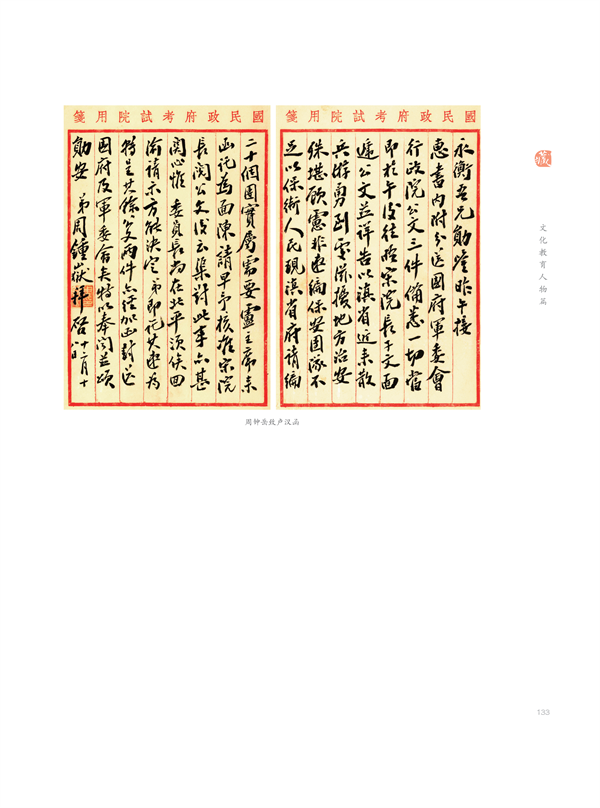 國民政府考試院用箋
永衡吾兄勛鑒昨午接
惠書內附分送國府軍委會
行政院公文三件備悉一切當
即於午後往晤宋院長子文面
遞公文並詳告以滇省近來散
兵游勇到處滋擾地方治安
殊堪顧慮非速編保安團隊不
足以保衛人民現滇省府請編
國民政府考試院用箋
二十個團實屬需要盧主席來
函託為面陳請早予核准宋院
長閱公文後云渠對此事亦甚
關心惟 委員長尚在北平須俟回
渝請示方能決定弟即託其速為
呈其餘兩件亦經加函封送
國府及軍委會矣特以奉聞並頌
勛安 弟周鍾嶽拜啓 月十
周钟岳致卢汉函
文化教育人物篇
133